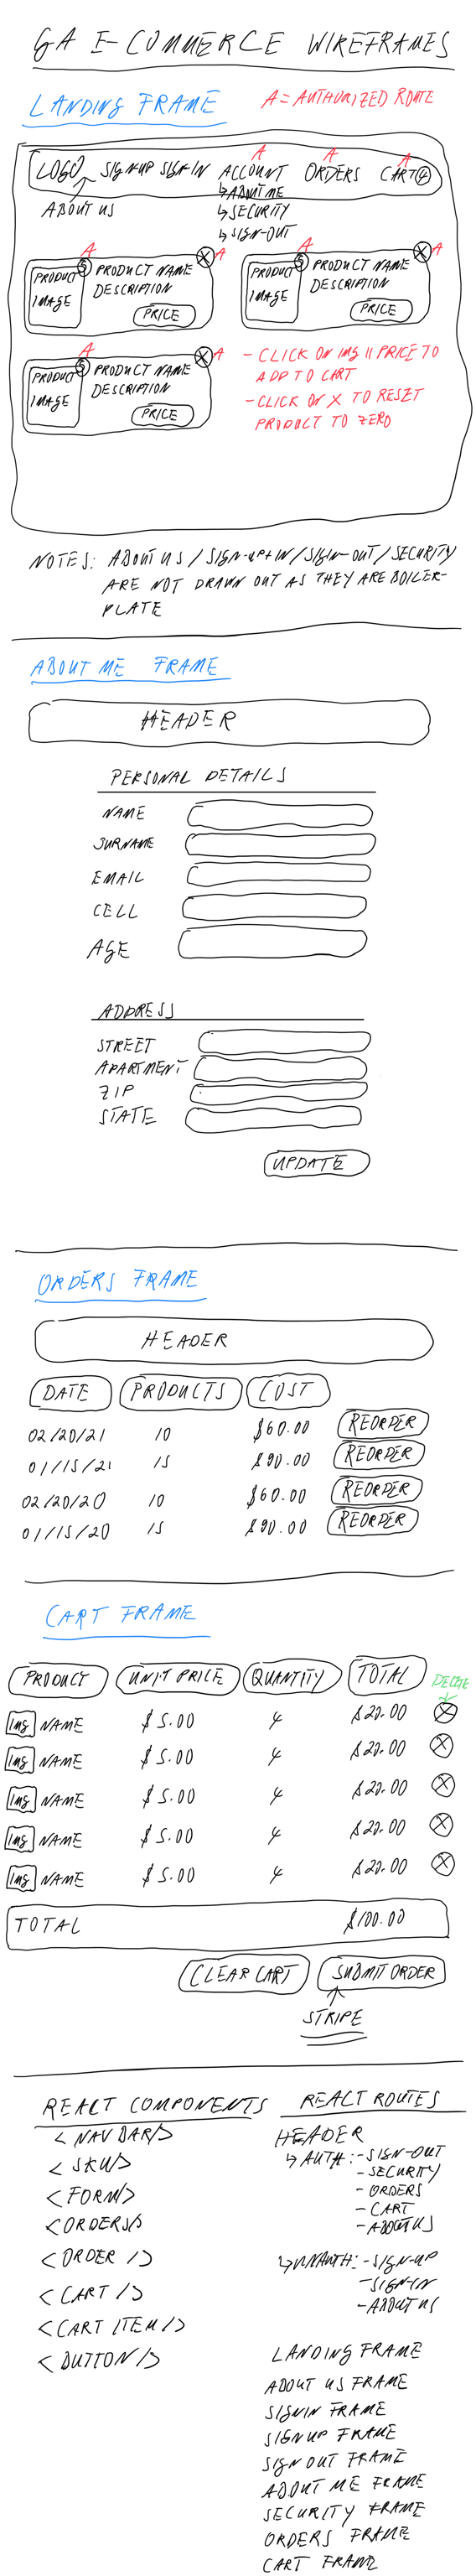 GA E-COMMERCE WIREFRAMES
LANDING FRAME
A = AUTHORIZED ROUTE
LOGO SIGN-UP SIGN-IN ACCOUNT ORDERS CART 4
A A A
ABOUT US
↳ ABOUT ME
↳ SECURITY
↳ SIGN-OUT
A
PRODUCT IMAGE
5
PRODUCT NAME
DESCRIPTION
PRICE
X A
A
PRODUCT IMAGE
5
PRODUCT NAME
DESCRIPTION
PRICE
X A
A
PRODUCT IMAGE
5
PRODUCT NAME
DESCRIPTION
PRICE
X A
- CLICK ON IMG || PRICE TO
ADD TO CART
- CLICK ON X TO RESET
PRODUCT TO ZERO
NOTES: ABOUT US / SIGN-UP+IN / SIGN-OUT / SECURITY
ARE NOT DRAWN OUT AS THEY ARE BOILER-
PLATE
ABOUT ME FRAME
HEADER
PERSONAL DETAILS
NAME
SURNAME
EMAIL
CELL
AGE
ADDRESS
STREET
APARTMENT
ZIP
STATE
UPDATE
ORDERS FRAME
HEADER
DATE PRODUCTS COST
02/20/21 10 $60.00 REORDER
01/15/21 15 $90.00 REORDER
02/20/20 10 $60.00 REORDER
01/15/20 15 $90.00 REORDER
CART FRAME
PRODUCT UNIT PRICE QUANTITY TOTAL DELETE
IMG NAME $5.00 4 $20.00 X
IMG NAME $5.00 4 $20.00 X
IMG NAME $5.00 4 $20.00 X
IMG NAME $5.00 4 $20.00 X
IMG NAME $5.00 4 $20.00 X
TOTAL $100.00
CLEAR CART SUBMIT ORDER
STRIPE
REACT COMPONENTS
< NAV BAR/>
< SKU/>
< FORM/>
<ORDERS/>
< ORDER />
< CART />
<CART ITEM/>
< BUTTON/>
REACT ROUTES
HEADER
↳ AUTH: - SIGN-OUT
- SECURITY
- ORDERS
- CART
- ABOUT US
↳ UNAUTH: - SIGN-UP
- SIGN-IN
- ABOUT US
LANDING FRAME
ABOUT US FRAME
SIGNIN FRAME
SIGNUP FRAME
SIGN OUT FRAME
ABOUT ME FRAME
SECURITY FRAME
ORDERS FRAME
CART FRAME